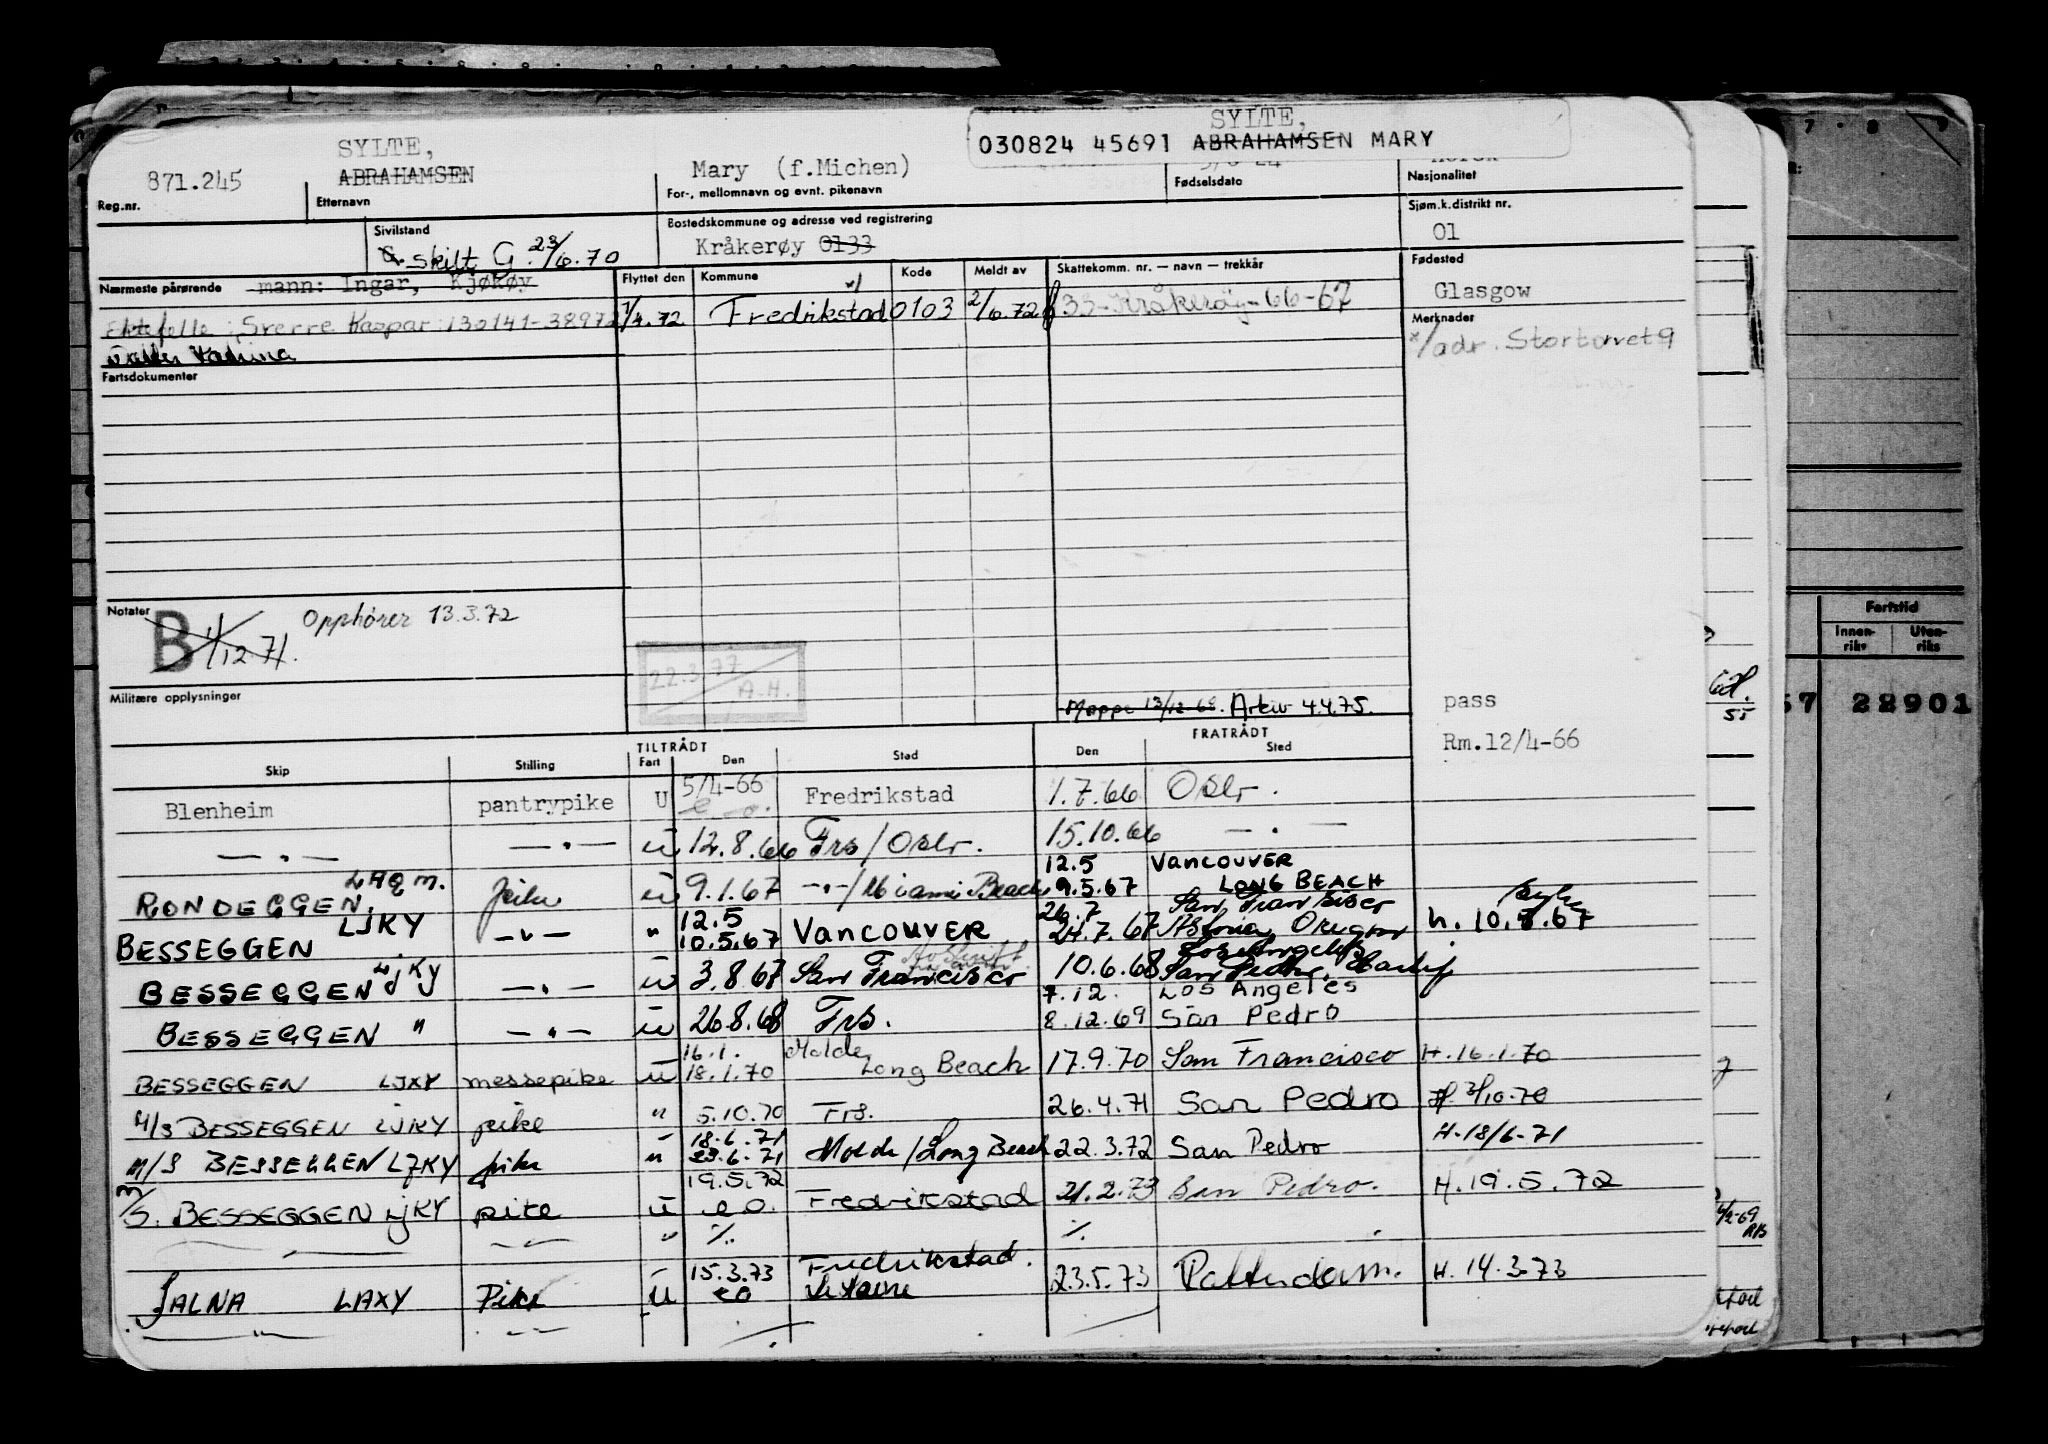 SYLTE,
030824 45691 ABRAHAMSEN MARY
SYLTE,
871.245 ABRAHAMSEN Mary (f.Michen)
Reg.nr. Etternavn For-, mellomnavn og evnt. pikenavn Fødselsdato Nasjonalitet
Sivilstand Bostedskommune og adresse ved registrering Sjøm.k.distrikt nr.
skilt G. 23/6.70 Kråkerøy 0133 01
Nærmeste pårørende mann: Ingar, Kjøkøy Flyttet den Kommune Kode Meldt av Skattekomm. nr. — navn — trekkår Fødested
Glasgow
Ektefelle: Sverre Kaspar: 130141-38972 1/4.72 Fredrikstad x/ 0103 2/6.72 33-Kråkerøy-66-67
Merknader
x/adr. Stortorvet 9
Fartsdokumenter
Notater
B 1/12.71. Opphører 13.3.72
22.3.77
A.H.
Militære opplysninger
Mappe 13/12-68. Arkiv 4.4.75. pass
Rm.12/4-66
TILTRÅDT FRATRÅDT
Skip Stilling Fart Den Sted Den Sted
Blenheim pantrypike U 5/4-66 e.o. Fredrikstad 1.7.66 Oslo.
— " — — " — u 12.8.66 Frs / Oslo. 15.10.66 — " —
12.5 VANCOUVER
RONDEGGEN. LAQM. pike u 9.1.67 — " — / Miami Beach 9.5.67 LONG BEACH
12.5 26.7 San Francisco
BESSEGGEN LJKY — " — " 10.5.67 VANCOUVER 24.7.67 Astoria, Oregon h. 10.8.67
BESSEGGEN LJKY — " — u 3.8.67 San Francisco 10.6.68 San Pedro,
7.12. LOS ANGELES
BESSEGGEN " — " — u 26.8.68 Frs. 8.12.69 San Pedro
16.1. Molde
BESSEGGEN LJKY messepike u 18.1.70 Long Beach 17.9.70 San Francisco H. 16.1.70
M/S BESSEGGEN LJKY pike " 5.10.70 Frs. 26.4.71 San Pedro H 2/10.70
18.6.71
M/S BESSEGGEN LJKY pike " 23.6.71 Molde / Long Beach 22.3.72 San Pedro H. 18/6.71
19.5.72
M/S. BESSEGGEN LJKY pike u e.o. Fredrikstad 21.2.73 San Pedro. H. 19.5.72
— " — — " — " %. %.
15.3.73 Fredrikstad.
JALNA LAXY Pike u eo Le Havre 23.5.73 Rotterdam. H. 14.3.73
— " — — " —
Fartstid
Innen-riks Uten-riks
57 22901